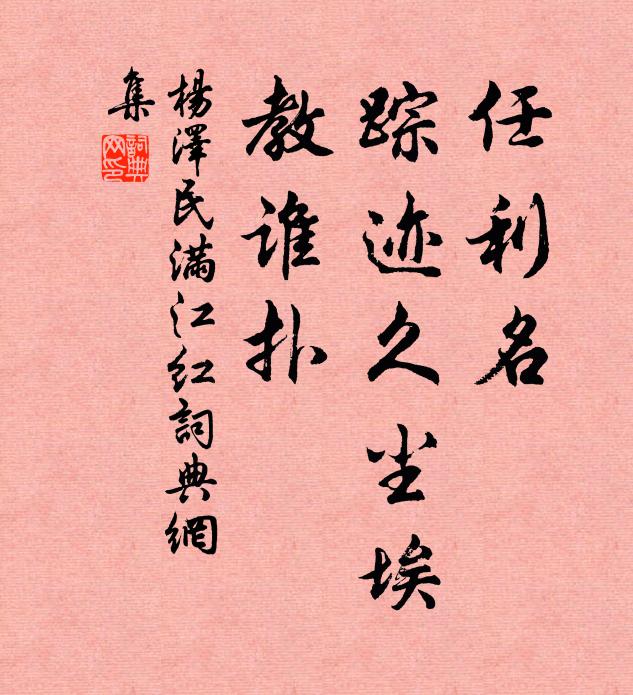 任利名
踪迹久尘埃
教谁扑
杨澤民满江红詞典網
集
詞典
网印